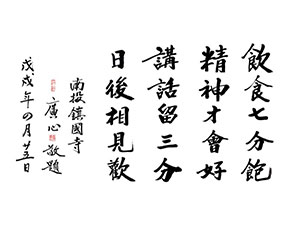 飲食七分飽
精神才會好
講話留三分
日後相見歡
南投鎮國寺
廣心敬題
戊戌年四月廿五日